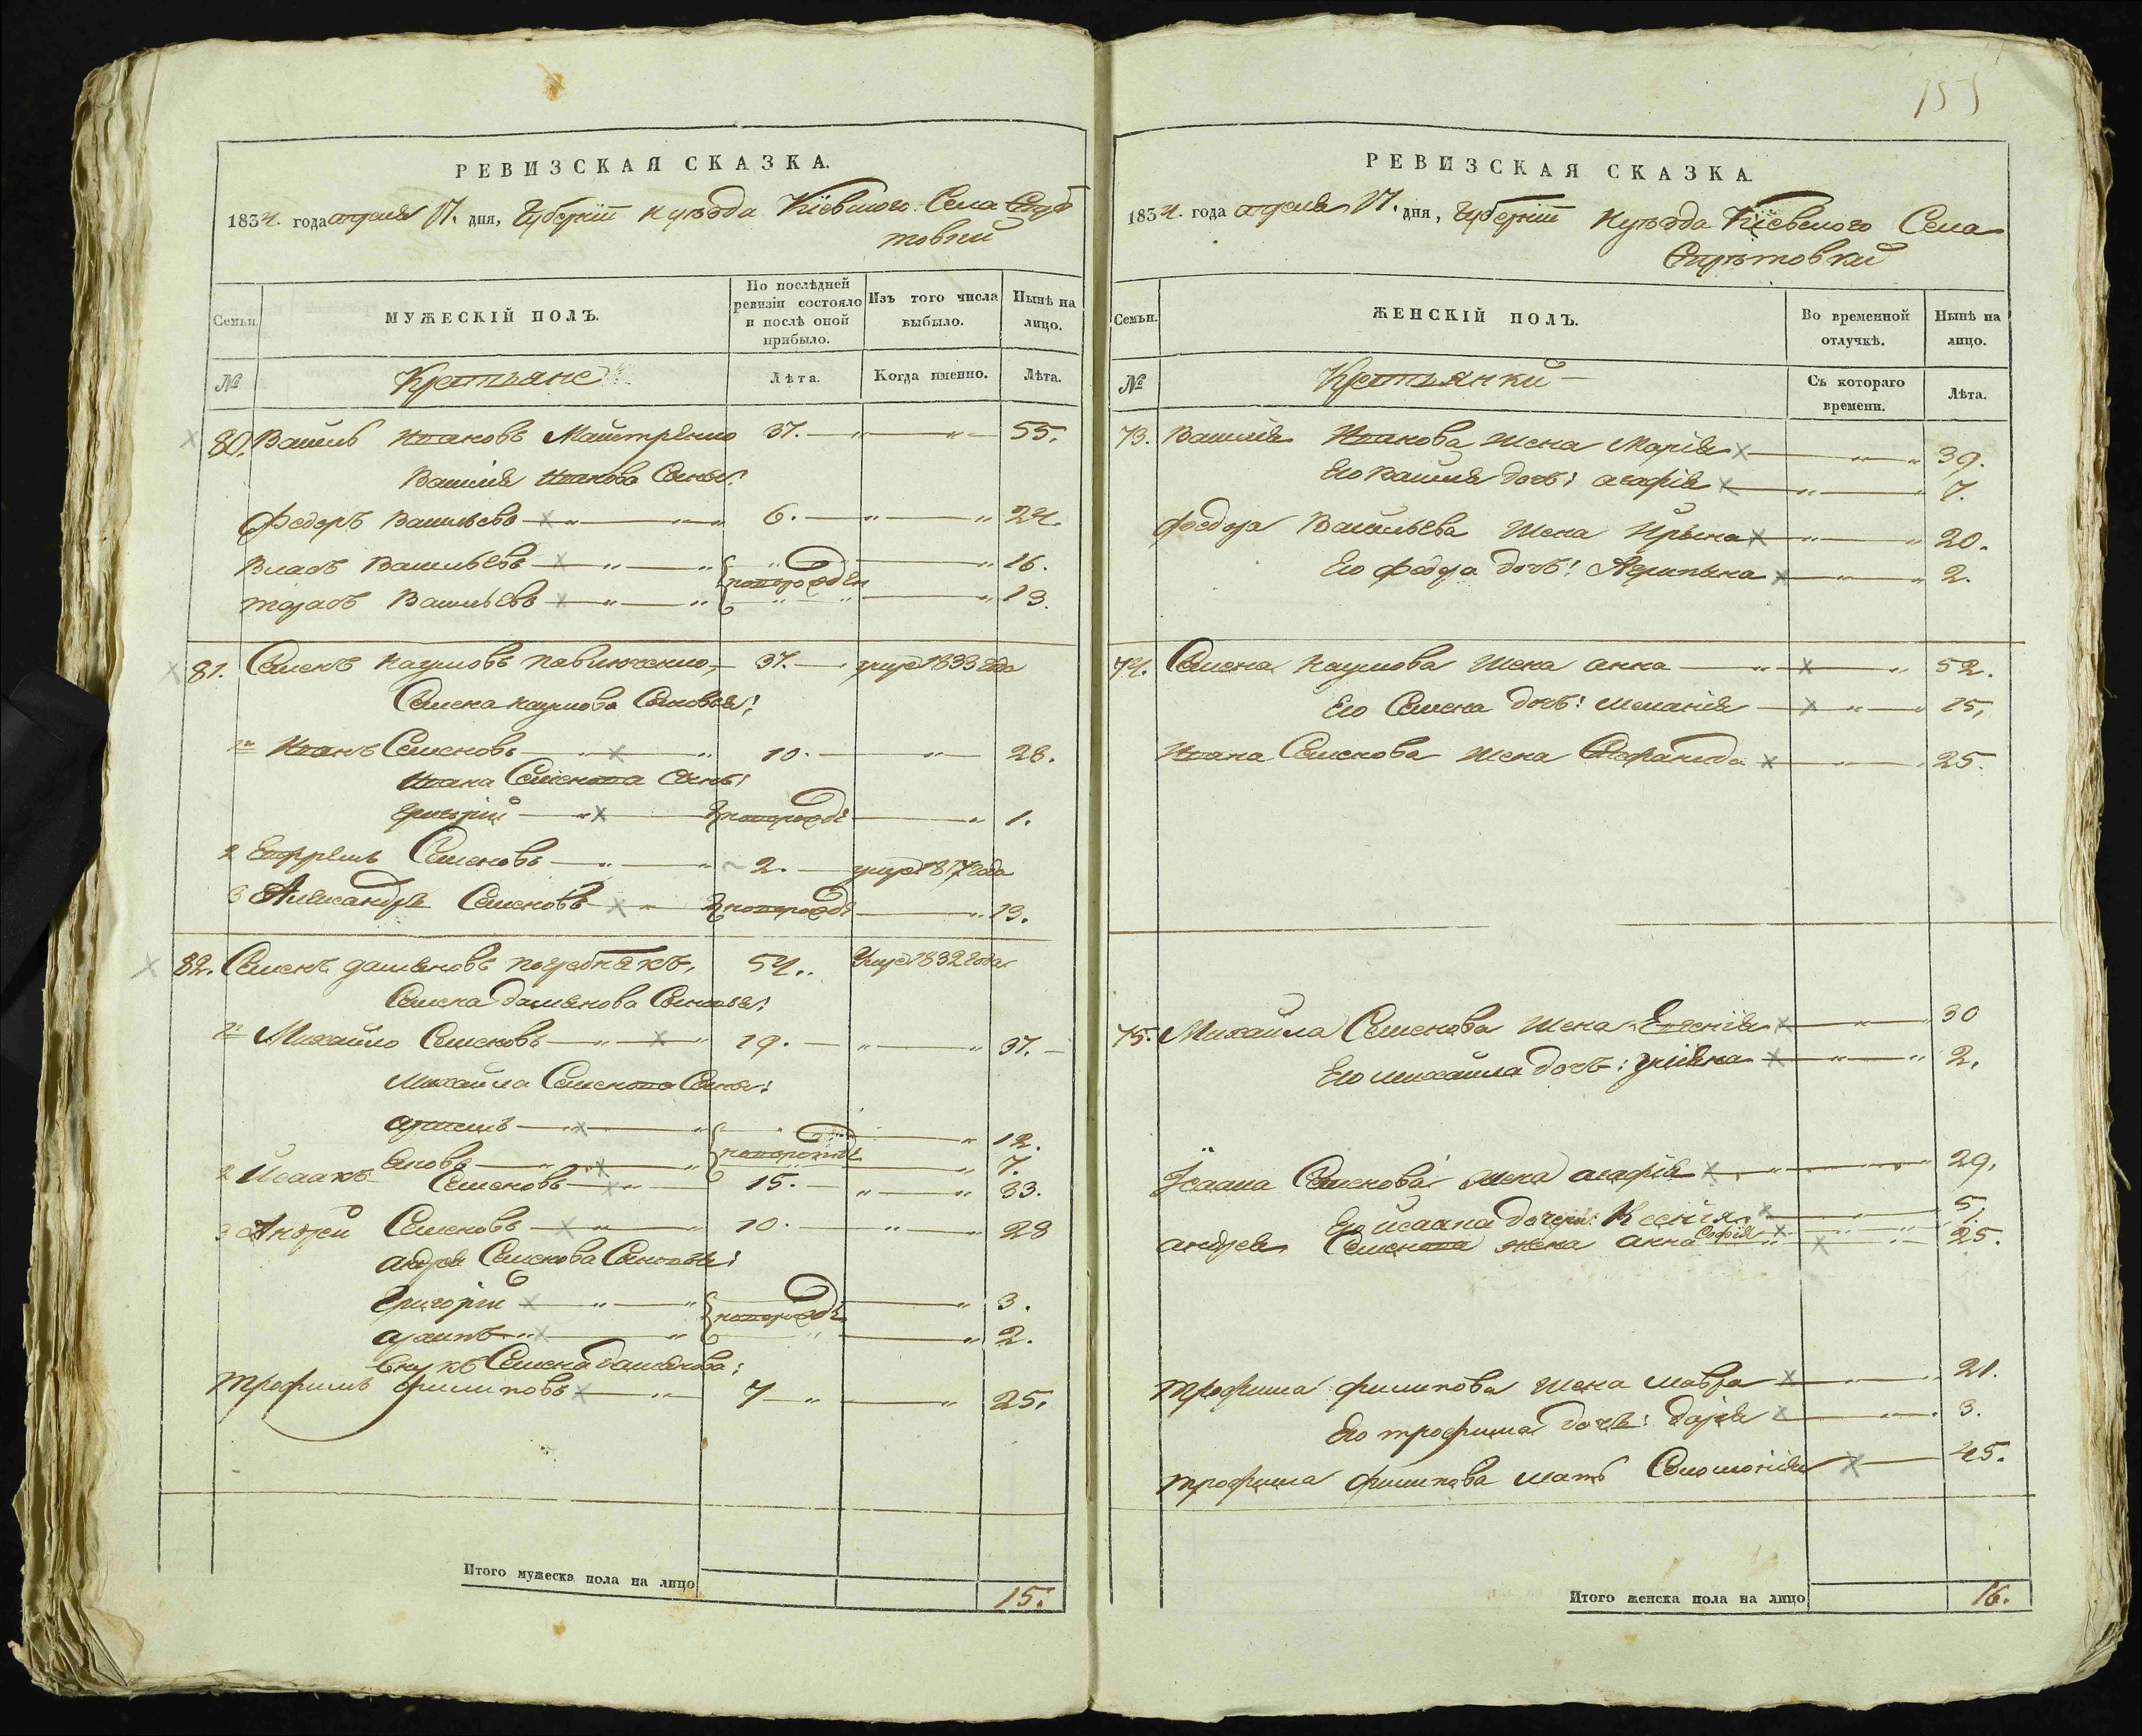 155
РЕВИЗСКАЯ СКАЗКА.
1834. года апреля 17. дня, Губернии и уезда Киевского Села
товки
Семьи.
МУЖЕСКІЙ ПОЛЪ.
По послѣдней ревизіи состояло и послѣ оной прибыло.
Изъ того числа выбыло.
Нынѣ на лицо.
№
Крестьяне
Лѣта.
Когда именно.
Лѣта.
80. Василь Ивановъ Майстренко 37. 55.
Василия Иванова Сыны:
Федоръ Васильевъ 6. 24.
Власъ Васильевъ 16.
новорожден
Тарасъ Васильевъ 13.
81. Семенъ Наумовъ Павлюченко 37. умре 1833 года
Семена Наумова Сыновья:
1й Иванъ Семеновъ 10. 28.
Ивана Семенова Сынъ:
Григорий новорожде 1.
2 Ефремъ Семеновъ 2. умре 1817 года
3 Александръ Семеновъ новорожде 13.
82. Семенъ Дамяновъ Погребнякъ, 54. Умре 1832 года
Семена Дамянова Сыновья:
1й Михайло Семеновъ 19. 37.
Михайла Семенова Сыны:
Артемъ 12.
новорожде
Яковъ 7.
2 Исаакъ Семеновъ 15. 33.
3 Андрей Семеновъ 10. 28
Андрея Семенова Сыновья:
Григорий 3.
новорожде
Архипъ 2.
Внукъ Семена Дамянова:
Трофимъ Филиповъ 7 25.
Итого мужеска пола на лицо 15.
РЕВИЗСКАЯ СКАЗКА.
1834. года апреля 17. дня, Губернии и уезда Киевского Села
товки
Семьи.
ЖЕНСКІЙ ПОЛЪ.
Во временной отлучкѣ.
Нынѣ на лицо.
№
Крестьянки
Съ котораго времени.
Лѣта.
73. Василия Иванова жена Мария 39.
Его Василия дочь: Агафия 7.
Федора Васильева жена Ирына 20.
Его Федора дочь: Агрипына 2.
74. Семена Наумова жена Анна 52.
Его Семена дочь: Мелания 15.
Ивана Семенова жена Стефанида 25.
75. Михайла Семенова жена Евгения 30
Его Михайла дочь: Улияна 2.
Ісаака Семенова жена Агафия 29.
Его Исаака дочери: Ксения 5
София 1.
Андрея Семенова жена Анна 25.
Трофима Филипова жена Мавра 21.
Его Трофима дочь: Дария 3.
Трофима Филипова мать Соломония 45.
Итого женска пола на лицо 16.